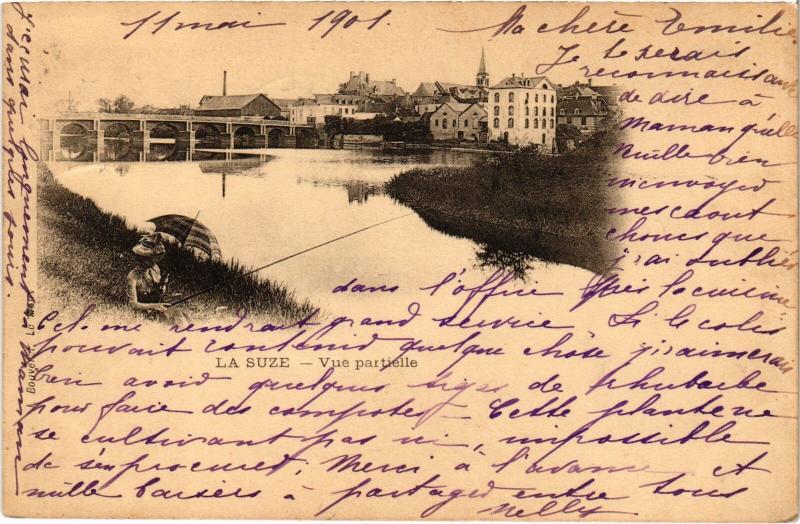 11 mai 1901. Ma chère Emilie.
Je te serais
reconnaissante
de dire à
Maman qu'elle
veuille bien
m'envoyer
mes caout
choucs que
j'ai oubliés
dans l'office près la cuisine
Cela me rendrait grand service. Si le colis
pouvait contenir quelque chose j'aimerais
bien avoir quelques tiges de rhubarbe
pour faire des compotes. Cette plante ne
se cultivant pas ici, impossible
de s'en procurer. Merci à l'avance et
mille baisers à partager entre tous
Nelly
J'écrirai longuement à Maman
dans quelques jours.
LA SUZE — Vue partielle
Bouveret, Le Mans